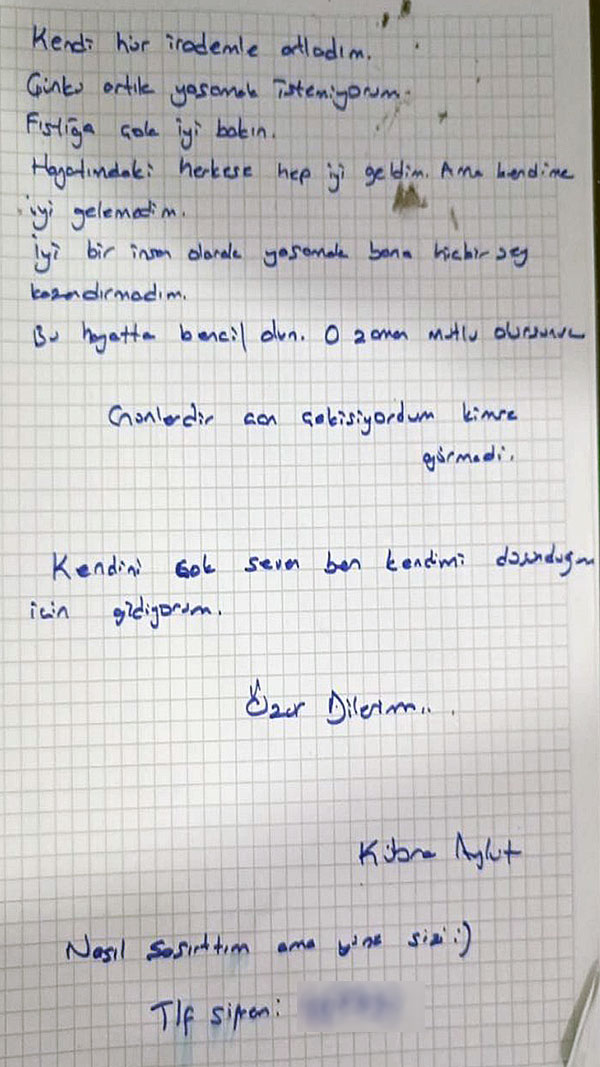 Kendi hür irademle atladım.
Çünkü artık yaşamak istemiyorum.
Fıstığa çok iyi bakın.
Hayatımdaki herkese hep iyi geldim. Ama kendime
iyi gelemedim.
İyi bir insan olarak yaşamak bana hiçbir şey
kazandırmadım.
Bu hayatta bencil olun. O zaman mutlu olursunuz
Günlerdir can çekişiyordum kimse
görmedi.
Kendini çok seven ben kendimi düşündüğüm
için gidiyorum.
Özür Dilerim...
Kübra Aykut
Nasıl şaşırttım ama yine sizi :)
Tlf şifrem: